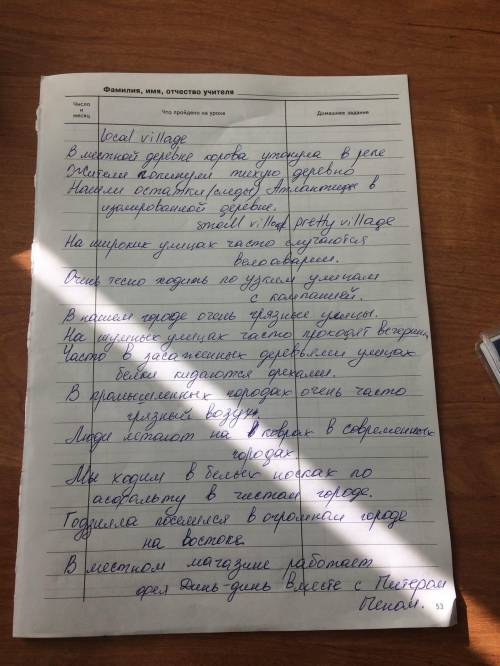 Фамилия, имя, отчество учителя
Число и месяц
Что пройдено на уроке
Домашнее задание
local village
В местной деревне корова утонула в реке
Жители покинули тихую деревню
Нашли остатки (следы) Атлантиды в
изолированной деревне.
small village pretty village
На широких улицах часто случаются
велоаварии.
Очень тесно ходить по узким улицам
с компанией.
В нашем городе очень грязные улицы.
На шумных улицах часто проходят вечеринки
Часто в засаженных деревьями улицах
белки кидаются орехами.
В промышленных городах очень часто
грязный воздух
Люди летают на коврах в современных
городах
Мы ходим в белых носках по
асфальту в чистом городе.
Годзилла поселился в огромном городе
на востоке
В местном магазине работает
фея Динь-динь вместе с Питером
Пеном.
53